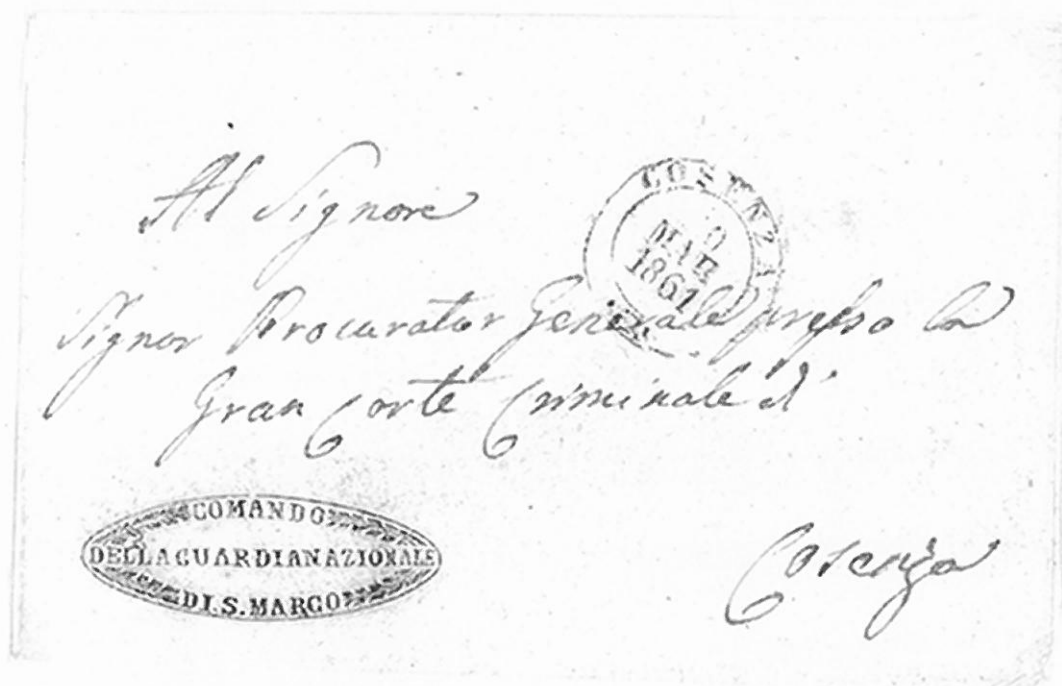 Al Signore
COSENZA
9
MAR
1861
Signor Procurator Generale presso la
Gran Corte Criminale di
COMANDO
DELLA GUARDIA NAZIONALE
DI S. MARCO
Cosenza